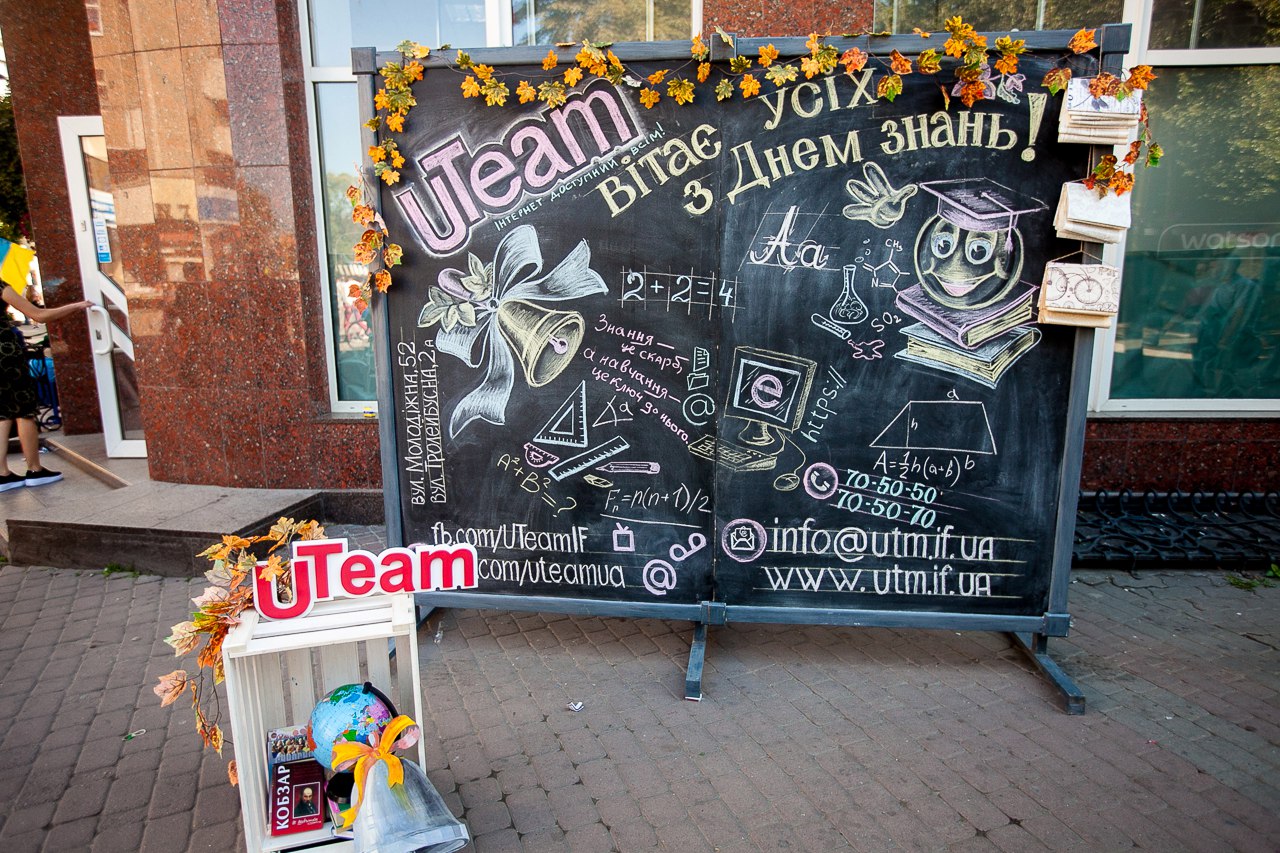 UTeam
ІНТЕРНЕТ ДОСТУПНИЙ ВСІМ!
вітає усіх
з Днем знань!
Аа
2+2=4
CH3
N
SO2
Знання —
це скарб,
а навчання —
це ключ до нього
@
e
https://
a
h
b
A=½h(a+b)
α
A²+B²=?
Fn=n(n+1)/2
вул. Молодіжна, 52
вул. Тролейбусна, 2а
70-50-50
70-50-70
fb.com/UTeamIF
.com/uteamua
@
info@utm.if.ua
www.utm.if.ua
UTeam
КОБЗАР
watson